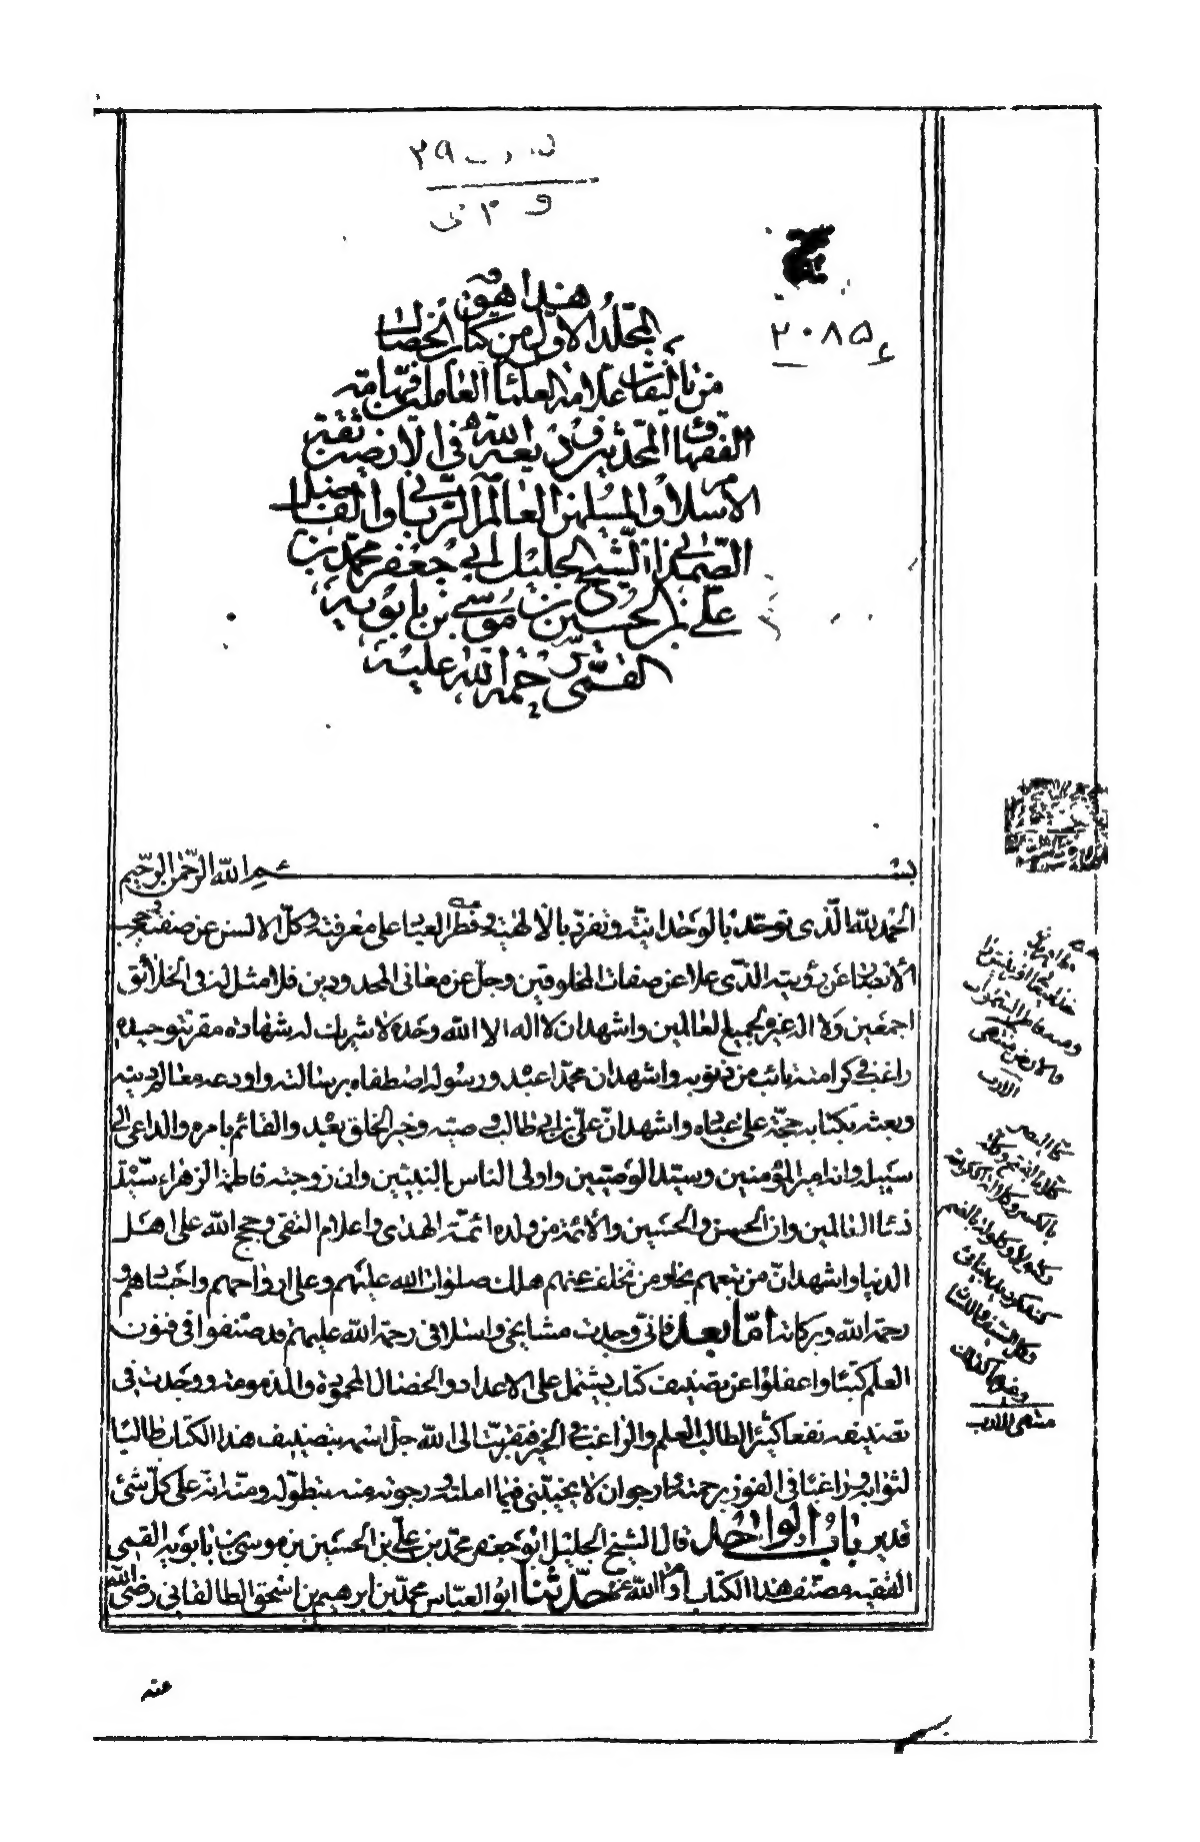 هذا هو
المجلد الاول من كتاب الخصال
من تأليفات علامة العلماء العاملين فهامة
الفقهاء المحدثين وديعة الله في الارضين ثقة
الاسلام والمسلمين العالم الرباني والفاضل
الصمداني الشيخ الجليل ابي جعفر محمد بن
علي بن الحسين بن موسى بن بابويه
القمي رحمة الله عليه
بسم الله الرحمن الرحيم
الحمد لله الذي توحد بالوحدانية وتفرد بالالهية وفطر العباد على معرفته وكل الالسن عن صفته وحجب
الابصار عن رؤيته الذي علا عن صفات المخلوقين وجل عن معاني المحدودين فلا مثل له في الخلائق
اجمعين ولا اله غيره لجميع العالمين واشهد ان لا اله الا الله وحده لا شريك له شهادة مقر بتوحيده
راغب في كرامته تائب من ذنوبه واشهد ان محمدا عبده ورسوله اصطفاه برسالته واودعه معالم دينه
وبعثه بكتابه حجة على عباده واشهد ان علي بن ابي طالب وصيه وخير الخلق بعده والقائم بامره والداعي الى
سبيله وانه امير المؤمنين وسيد الوصيين واولى الناس بالنبيين وان زوجته فاطمة الزهراء سيدة
نساء العالمين وان الحسن والحسين والائمة من ولده ائمة الهدى واعلام التقى وحجج الله على اهل
الدنيا واشهد ان من تبعهم نجا ومن تخلف عنهم هلك صلوات الله عليهم وعلى ارواحهم واجسادهم و
رحمة الله وبركاته اما بعد فاني وجدت مشايخي واسلافي رحمة الله عليهم قد صنفوا في فنون
العلم كتبا واغفلوا عن تصنيف كتاب يشتمل على الاعداد والخصال المحمودة والمذمومة ووجدت في
تصنيفه نفعا كثيرا لطالب العلم والراغب في الخير فتقربت الى الله جل اسمه بتصنيف هذا الكتاب طالبا
لثوابه وراغبا في الفوز برحمته وارجو ان لا يخيبني فيما املته ورجوته منه بتطوله ومنه انه على كل شئ
قدير باب الواحد قال الشيخ الجليل ابو جعفر محمد بن علي بن الحسين بن موسى بن بابويه القمي
الفقيه مصنف هذا الكتاب ادام الله عزه حدثنا ابو العباس محمد بن ابرهيم بن اسحق الطالقاني رضي الله
عنه
۲۰۸۵
كل البصر
منتهى الارب